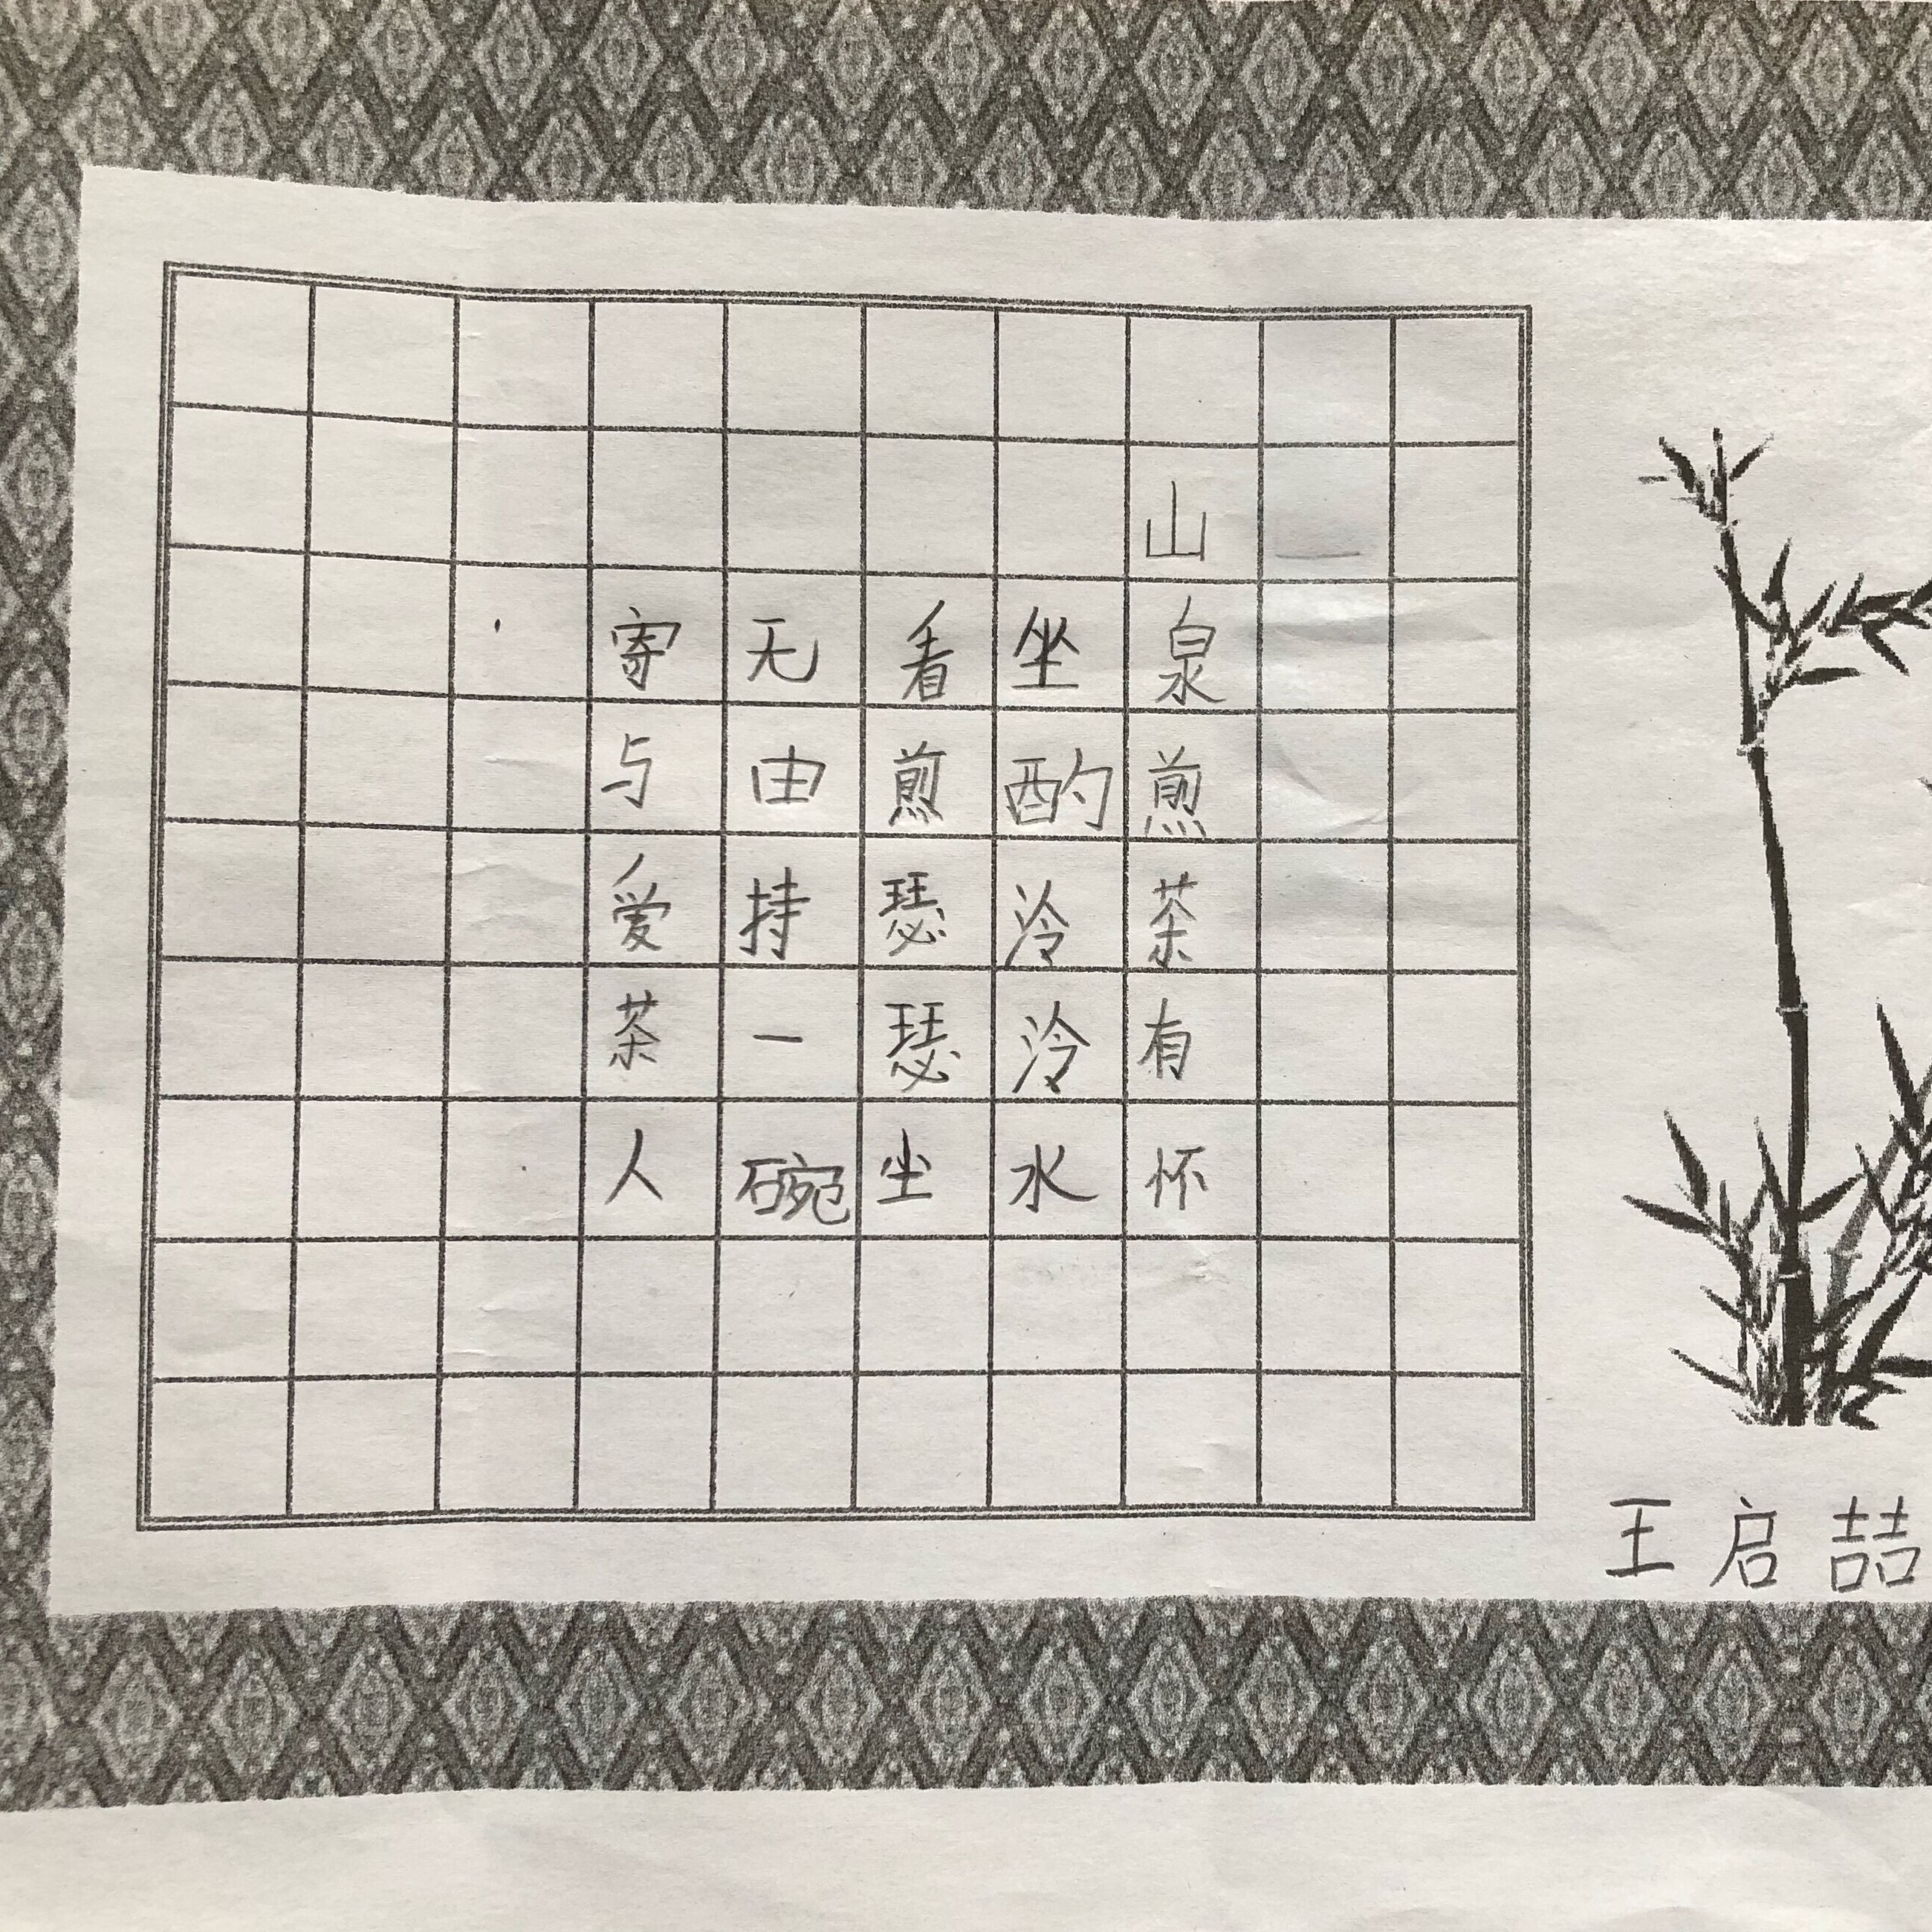 山泉煎茶有怀
坐酌泠泠水
看煎瑟瑟尘
无由持一碗
寄与爱茶人
王启喆